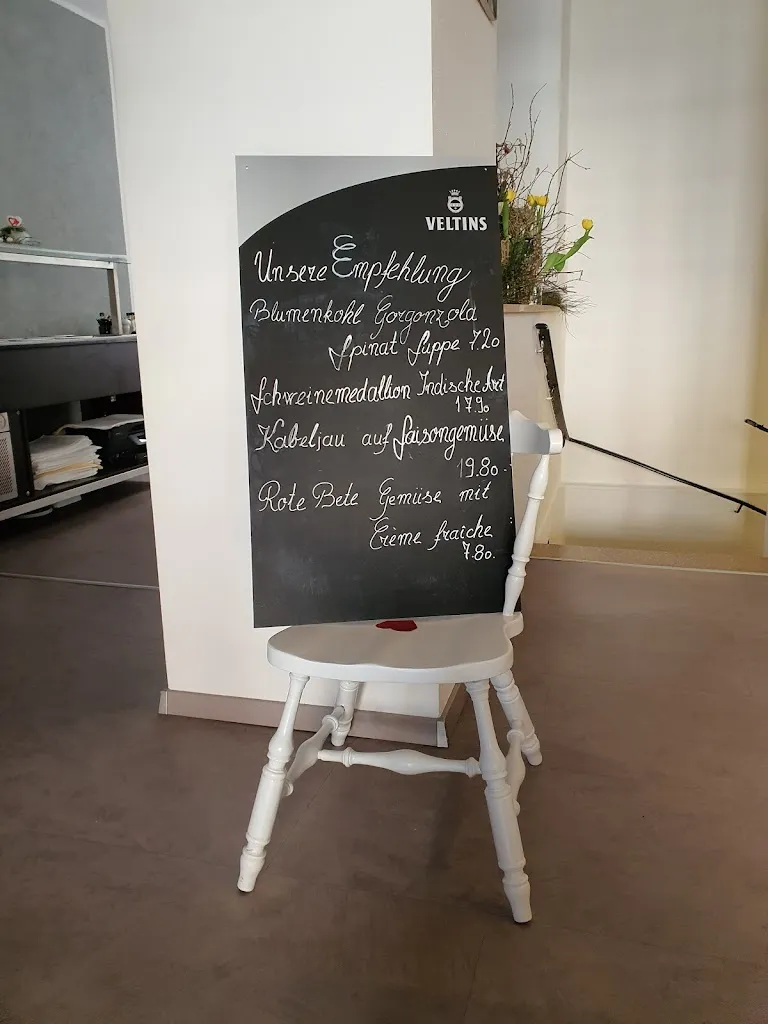 VELTINS
Unsere Empfehlung
Blumenkohl Gorgonzola
Spinat Suppe 7.20
Schweinemedallion Indische Art
17.90
Kabeljau auf Saisongemüse
19.80.
Rote Bete Gemüse mit
Crème fraiche
7.80.